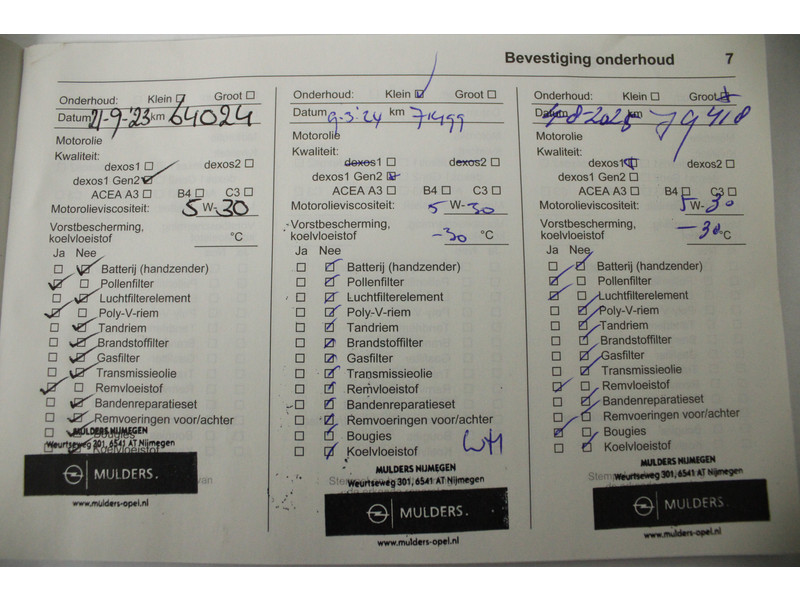 Bevestiging onderhoud 7
Onderhoud: Klein Groot
Datum 21-9-'23 km 64024
Motorolie
Kwaliteit:
dexos1 dexos2
dexos1 Gen2
ACEA A3 B4 C3
Motorolieviscositeit: 5 W-30
Vorstbescherming,
koelvloeistof °C
Ja Nee
Batterij (handzender)
Pollenfilter
Luchtfilterelement
Poly-V-riem
Tandriem
Brandstoffilter
Gasfilter
Transmissieolie
Remvloeistof
Bandenreparatieset
Remvoeringen voor/achter
Bougies
Koelvloeistof
MULDERS NIJMEGEN
Weurtseweg 301, 6541 AT Nijmegen
MULDERS.
www.mulders-opel.nl
Onderhoud: Klein Groot
Datum 9-3-'24 km 71499
Motorolie
Kwaliteit:
dexos1 dexos2
dexos1 Gen2
ACEA A3 B4 C3
Motorolieviscositeit: 5 W-30
Vorstbescherming,
koelvloeistof -30 °C
Ja Nee
Batterij (handzender)
Pollenfilter
Luchtfilterelement
Poly-V-riem
Tandriem
Brandstoffilter
Gasfilter
Transmissieolie
Remvloeistof
Bandenreparatieset
Remvoeringen voor/achter
Bougies
Koelvloeistof
MULDERS NIJMEGEN
Weurtseweg 301, 6541 AT Nijmegen
MULDERS.
www.mulders-opel.nl
Onderhoud: Klein Groot
Datum km 79418
Motorolie
Kwaliteit:
dexos1 dexos2
dexos1 Gen2
ACEA A3 B4 C3
Motorolieviscositeit: 5 W-30
Vorstbescherming,
koelvloeistof -30 °C
Ja Nee
Batterij (handzender)
Pollenfilter
Luchtfilterelement
Poly-V-riem
Tandriem
Brandstoffilter
Gasfilter
Transmissieolie
Remvloeistof
Bandenreparatieset
Remvoeringen voor/achter
Bougies
Koelvloeistof
MULDERS NIJMEGEN
Weurtseweg 301, 6541 AT Nijmegen
MULDERS.
www.mulders-opel.nl